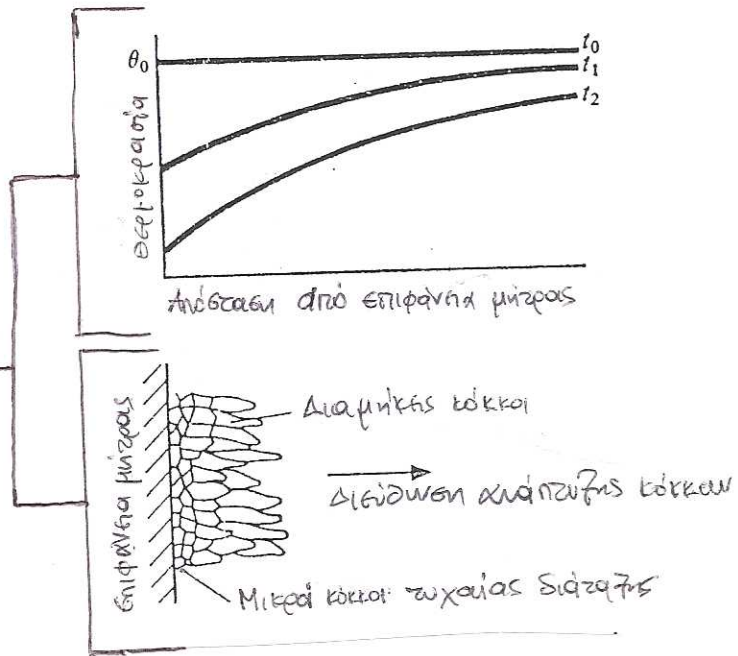 θ₀
t₀
t₁
t₂
θερμοκρασία
Απόσταση από επιφάνεια μήτρας
επιφάνεια μήτρας
Διαμήκεις κόκκοι
Διεύθυνση ανάπτυξης κόκκων
Μικροί κόκκοι τυχαίας διάταξης